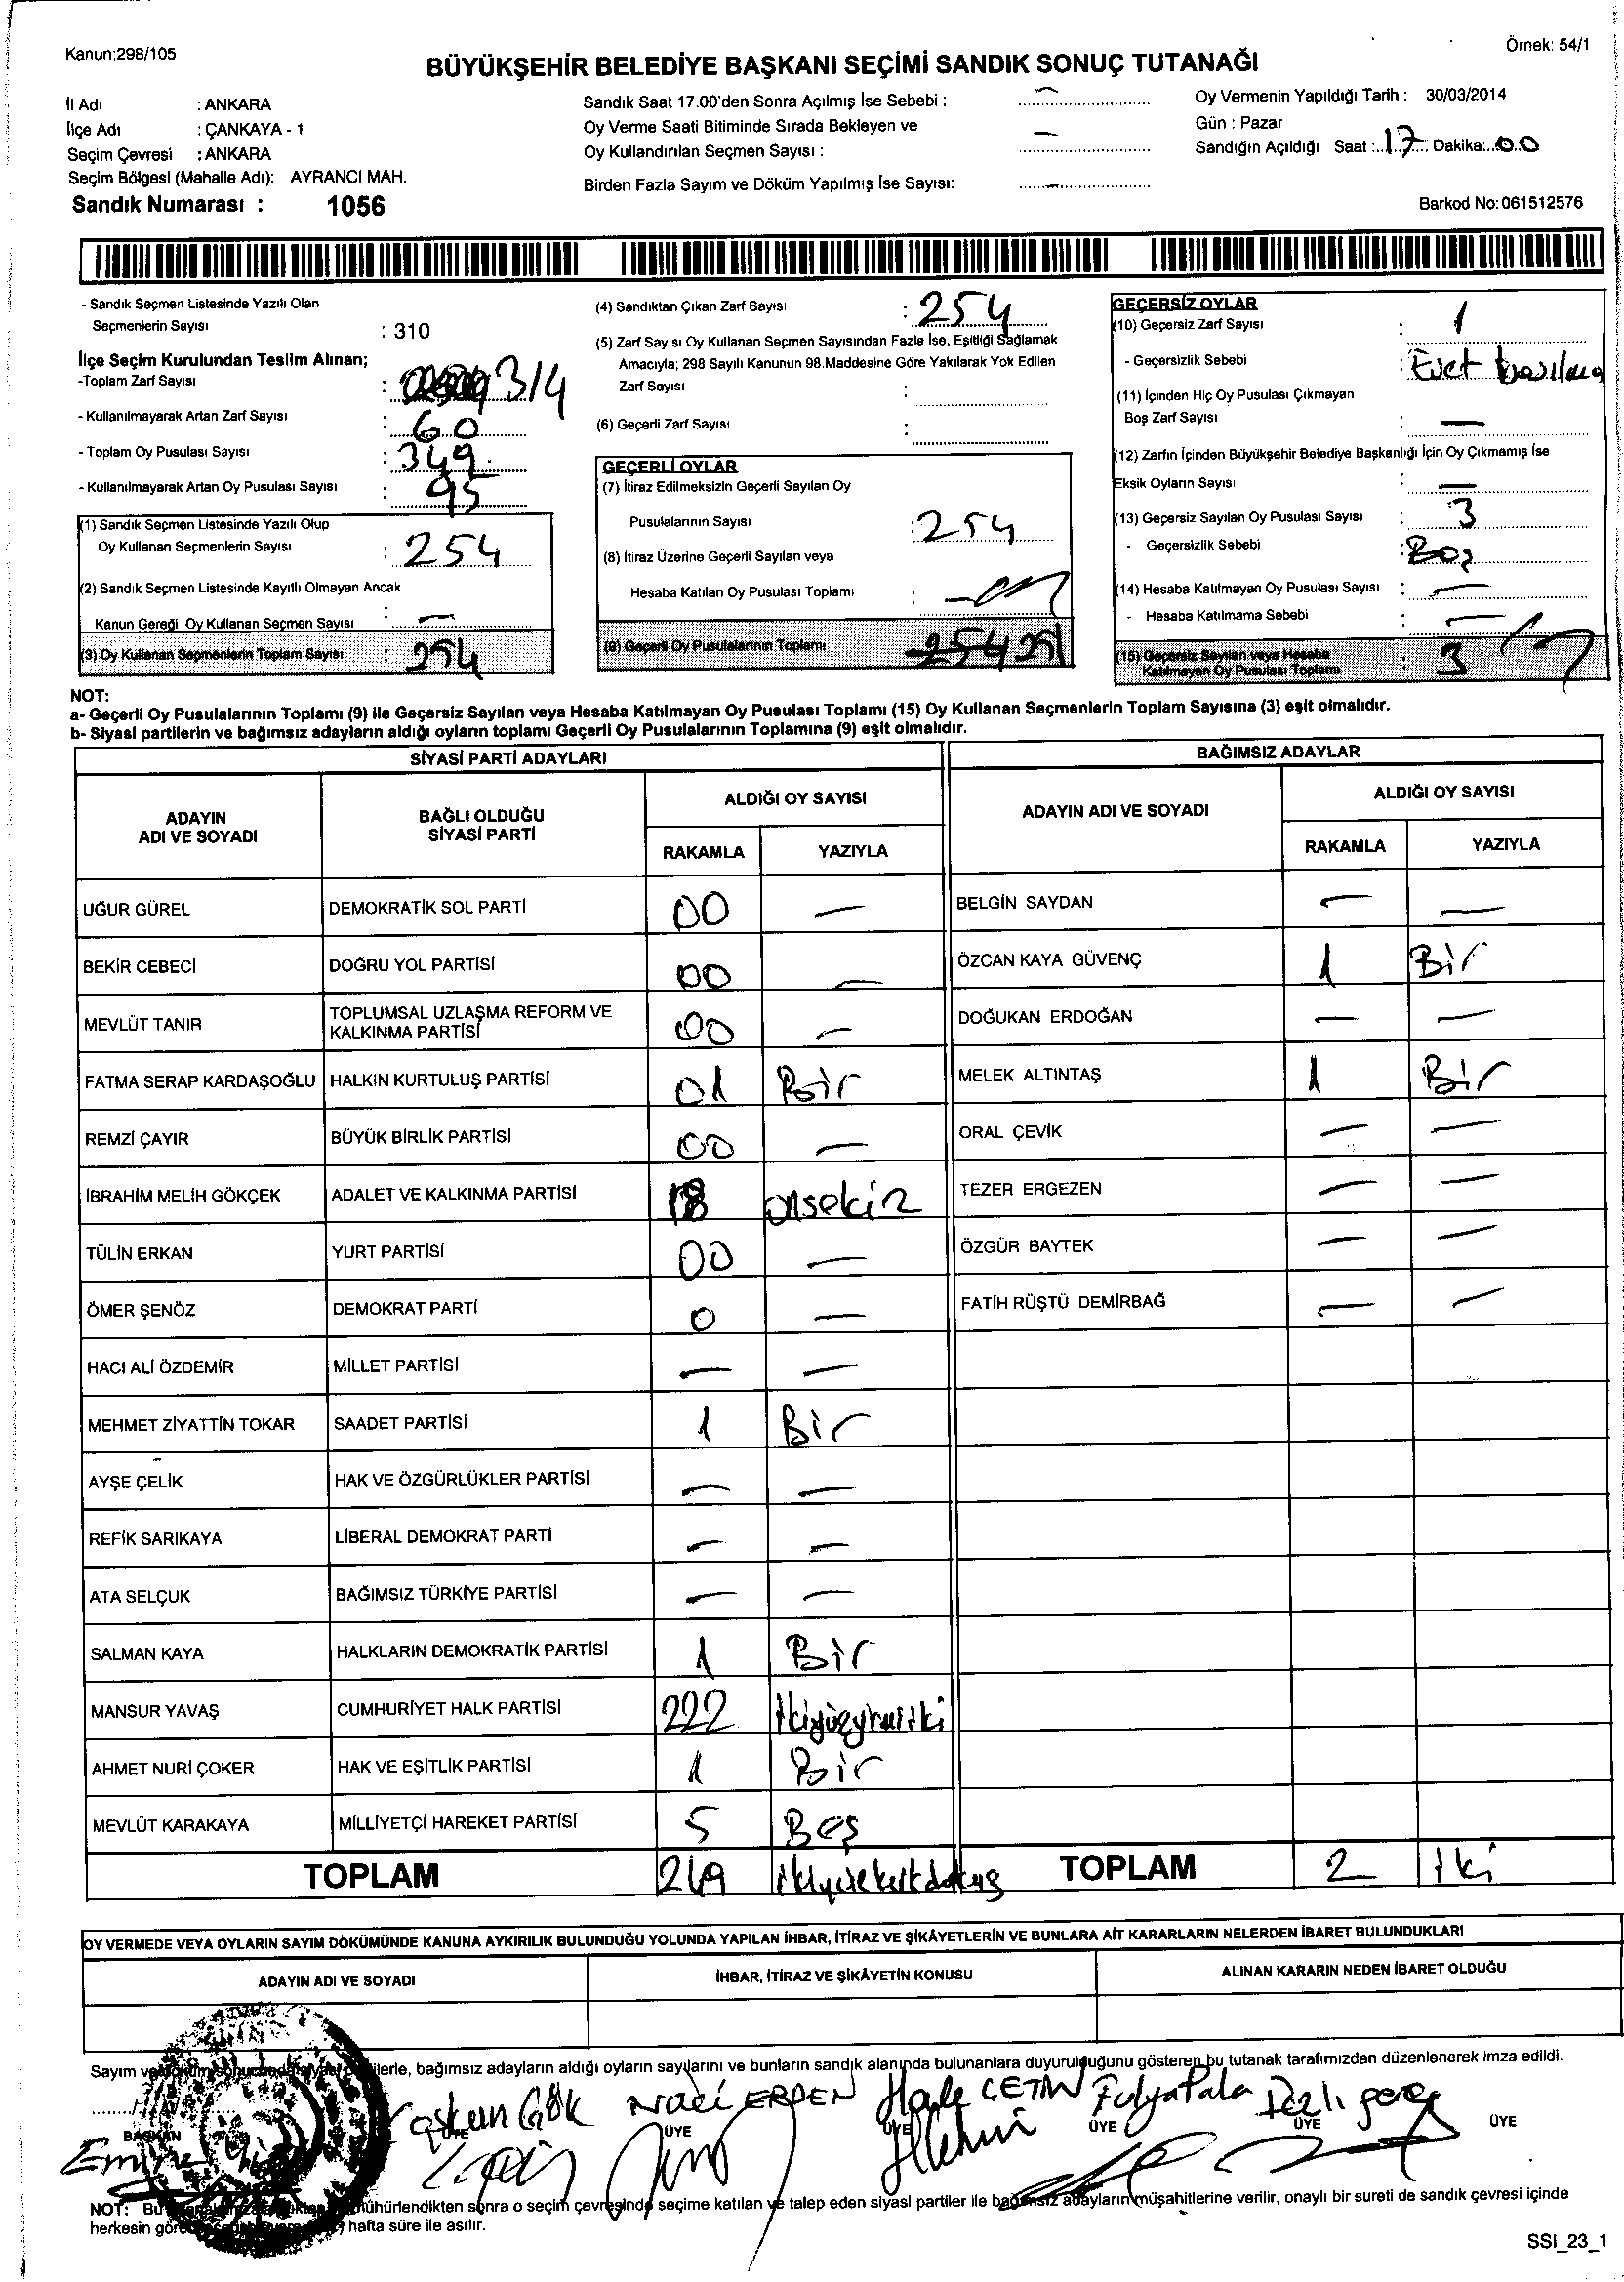 Kanun;298/105
Örnek: 54/1
BÜYÜKŞEHİR BELEDİYE BAŞKANI SEÇİMİ SANDIK SONUÇ TUTANAĞI
İl Adı : ANKARA
İlçe Adı : ÇANKAYA - 1
Seçim Çevresi : ANKARA
Seçim Bölgesi (Mahalle Adı): AYRANCI MAH.
Sandık Numarası : 1056
Sandık Saat 17.00'den Sonra Açılmış İse Sebebi : —
Oy Verme Saati Bitiminde Sırada Bekleyen ve
Oy Kullandırılan Seçmen Sayısı : —
Birden Fazla Sayım ve Döküm Yapılmış İse Sayısı: —
Oy Vermenin Yapıldığı Tarih : 30/03/2014
Gün : Pazar
Sandığın Açıldığı Saat : 17 Dakika: 00
Barkod No: 061512576
- Sandık Seçmen Listesinde Yazılı Olan
Seçmenlerin Sayısı : 310
İlçe Seçim Kurulundan Teslim Alınan;
-Toplam Zarf Sayısı : 314
- Kullanılmayarak Artan Zarf Sayısı : 60
- Toplam Oy Pusulası Sayısı : 349
- Kullanılmayarak Artan Oy Pusulası Sayısı : 95
(1) Sandık Seçmen Listesinde Yazılı Olup
Oy Kullanan Seçmenlerin Sayısı : 254
(2) Sandık Seçmen Listesinde Kayıtlı Olmayan Ancak
Kanun Gereği Oy Kullanan Seçmen Sayısı : —
(3) Oy Kullanan Seçmenlerin Toplam Sayısı : 254
(4) Sandıktan Çıkan Zarf Sayısı : 254
(5) Zarf Sayısı Oy Kullanan Seçmen Sayısından Fazla İse, Eşitliği Sağlamak
Amacıyla; 298 Sayılı Kanunun 98.Maddesine Göre Yakılarak Yok Edilen
Zarf Sayısı :
(6) Geçerli Zarf Sayısı :
GEÇERLİ OYLAR
(7) İtiraz Edilmeksizin Geçerli Sayılan Oy
Pusulalarının Sayısı : 254
(8) İtiraz Üzerine Geçerli Sayılan veya
Hesaba Katılan Oy Pusulası Toplamı : —
(9) Geçerli Oy Pusulalarının Toplamı : 254 251
GEÇERSİZ OYLAR
(10) Geçersiz Zarf Sayısı : 1
- Geçersizlik Sebebi : Evet
(11) İçinden Hiç Oy Pusulası Çıkmayan
Boş Zarf Sayısı : —
(12) Zarfın İçinden Büyükşehir Belediye Başkanlığı İçin Oy Çıkmamış İse
Eksik Oyların Sayısı : —
(13) Geçersiz Sayılan Oy Pusulası Sayısı : 3
- Geçersizlik Sebebi : Boş
(14) Hesaba Katılmayan Oy Pusulası Sayısı : —
- Hesaba Katılmama Sebebi : —
(15) Geçersiz Sayılan veya Hesaba
Katılmayan Oy Pusulası Toplamı : 3
NOT:
a- Geçerli Oy Pusulalarının Toplamı (9) ile Geçersiz Sayılan veya Hesaba Katılmayan Oy Pusulası Toplamı (15) Oy Kullanan Seçmenlerin Toplam Sayısına (3) eşit olmalıdır.
b- Siyasi partilerin ve bağımsız adayların aldığı oyların toplamı Geçerli Oy Pusulalarının Toplamına (9) eşit olmalıdır.
SİYASİ PARTİ ADAYLARI
ADAYIN ADI VE SOYADI BAĞLI OLDUĞU SİYASİ PARTİ ALDIĞI OY SAYISI
RAKAMLA YAZIYLA
UĞUR GÜREL DEMOKRATİK SOL PARTİ 00 —
BEKİR CEBECİ DOĞRU YOL PARTİSİ 00 —
MEVLÜT TANIR TOPLUMSAL UZLAŞMA REFORM VE KALKINMA PARTİSİ 00 —
FATMA SERAP KARDAŞOĞLU HALKIN KURTULUŞ PARTİSİ 01 Bir
REMZİ ÇAYIR BÜYÜK BİRLİK PARTİSİ 00 —
İBRAHİM MELİH GÖKÇEK ADALET VE KALKINMA PARTİSİ 18 onsekiz
TÜLİN ERKAN YURT PARTİSİ 00 —
ÖMER ŞENÖZ DEMOKRAT PARTİ 0 —
HACI ALİ ÖZDEMİR MİLLET PARTİSİ — —
MEHMET ZİYATTİN TOKAR SAADET PARTİSİ 1 Bir
AYŞE ÇELİK HAK VE ÖZGÜRLÜKLER PARTİSİ — —
REFİK SARIKAYA LİBERAL DEMOKRAT PARTİ — —
ATA SELÇUK BAĞIMSIZ TÜRKİYE PARTİSİ — —
SALMAN KAYA HALKLARIN DEMOKRATİK PARTİSİ 1 Bir
MANSUR YAVAŞ CUMHURİYET HALK PARTİSİ 222 ikiyüzyirmiiki
AHMET NURİ ÇOKER HAK VE EŞİTLİK PARTİSİ 1 Bir
MEVLÜT KARAKAYA MİLLİYETÇİ HAREKET PARTİSİ 5 Beş
TOPLAM 249 ikiyüzkırkdokuz
BAĞIMSIZ ADAYLAR
ADAYIN ADI VE SOYADI ALDIĞI OY SAYISI
RAKAMLA YAZIYLA
BELGİN SAYDAN — —
ÖZCAN KAYA GÜVENÇ 1 Bir
DOĞUKAN ERDOĞAN — —
MELEK ALTINTAŞ 1 Bir
ORAL ÇEVİK — —
TEZER ERGEZEN — —
ÖZGÜR BAYTEK — —
FATİH RÜŞTÜ DEMİRBAĞ — —
TOPLAM 2 iki
OY VERMEDE VEYA OYLARIN SAYIM DÖKÜMÜNDE KANUNA AYKIRILIK BULUNDUĞU YOLUNDA YAPILAN İHBAR, İTİRAZ VE ŞİKÂYETLERİN VE BUNLARA AİT KARARLARIN NELERDEN İBARET BULUNDUKLARI
ADAYIN ADI VE SOYADI İHBAR, İTİRAZ VE ŞİKÂYETİN KONUSU ALINAN KARARIN NEDEN İBARET OLDUĞU
Sayım bağımsız adayların aldığı oyların sayılarını ve bunların sandık alanında bulunanlara duyurulduğunu gösteren bu tutanak tarafımızdan düzenlenerek imza edildi.
GÖK Naci ERDEN Hale ÇETİN Fulya Pala
BAŞKAN ÜYE ÜYE ÜYE ÜYE ÜYE ÜYE
Emine
NOT: Bu mühürlendikten sonra o seçim çevresinde seçime katılan ve talep eden siyasi partiler ile bağımsız adayların müşahitlerine verilir, onaylı bir sureti de sandık çevresi içinde
herkesin hafta süre ile asılır.
SSI_23_1